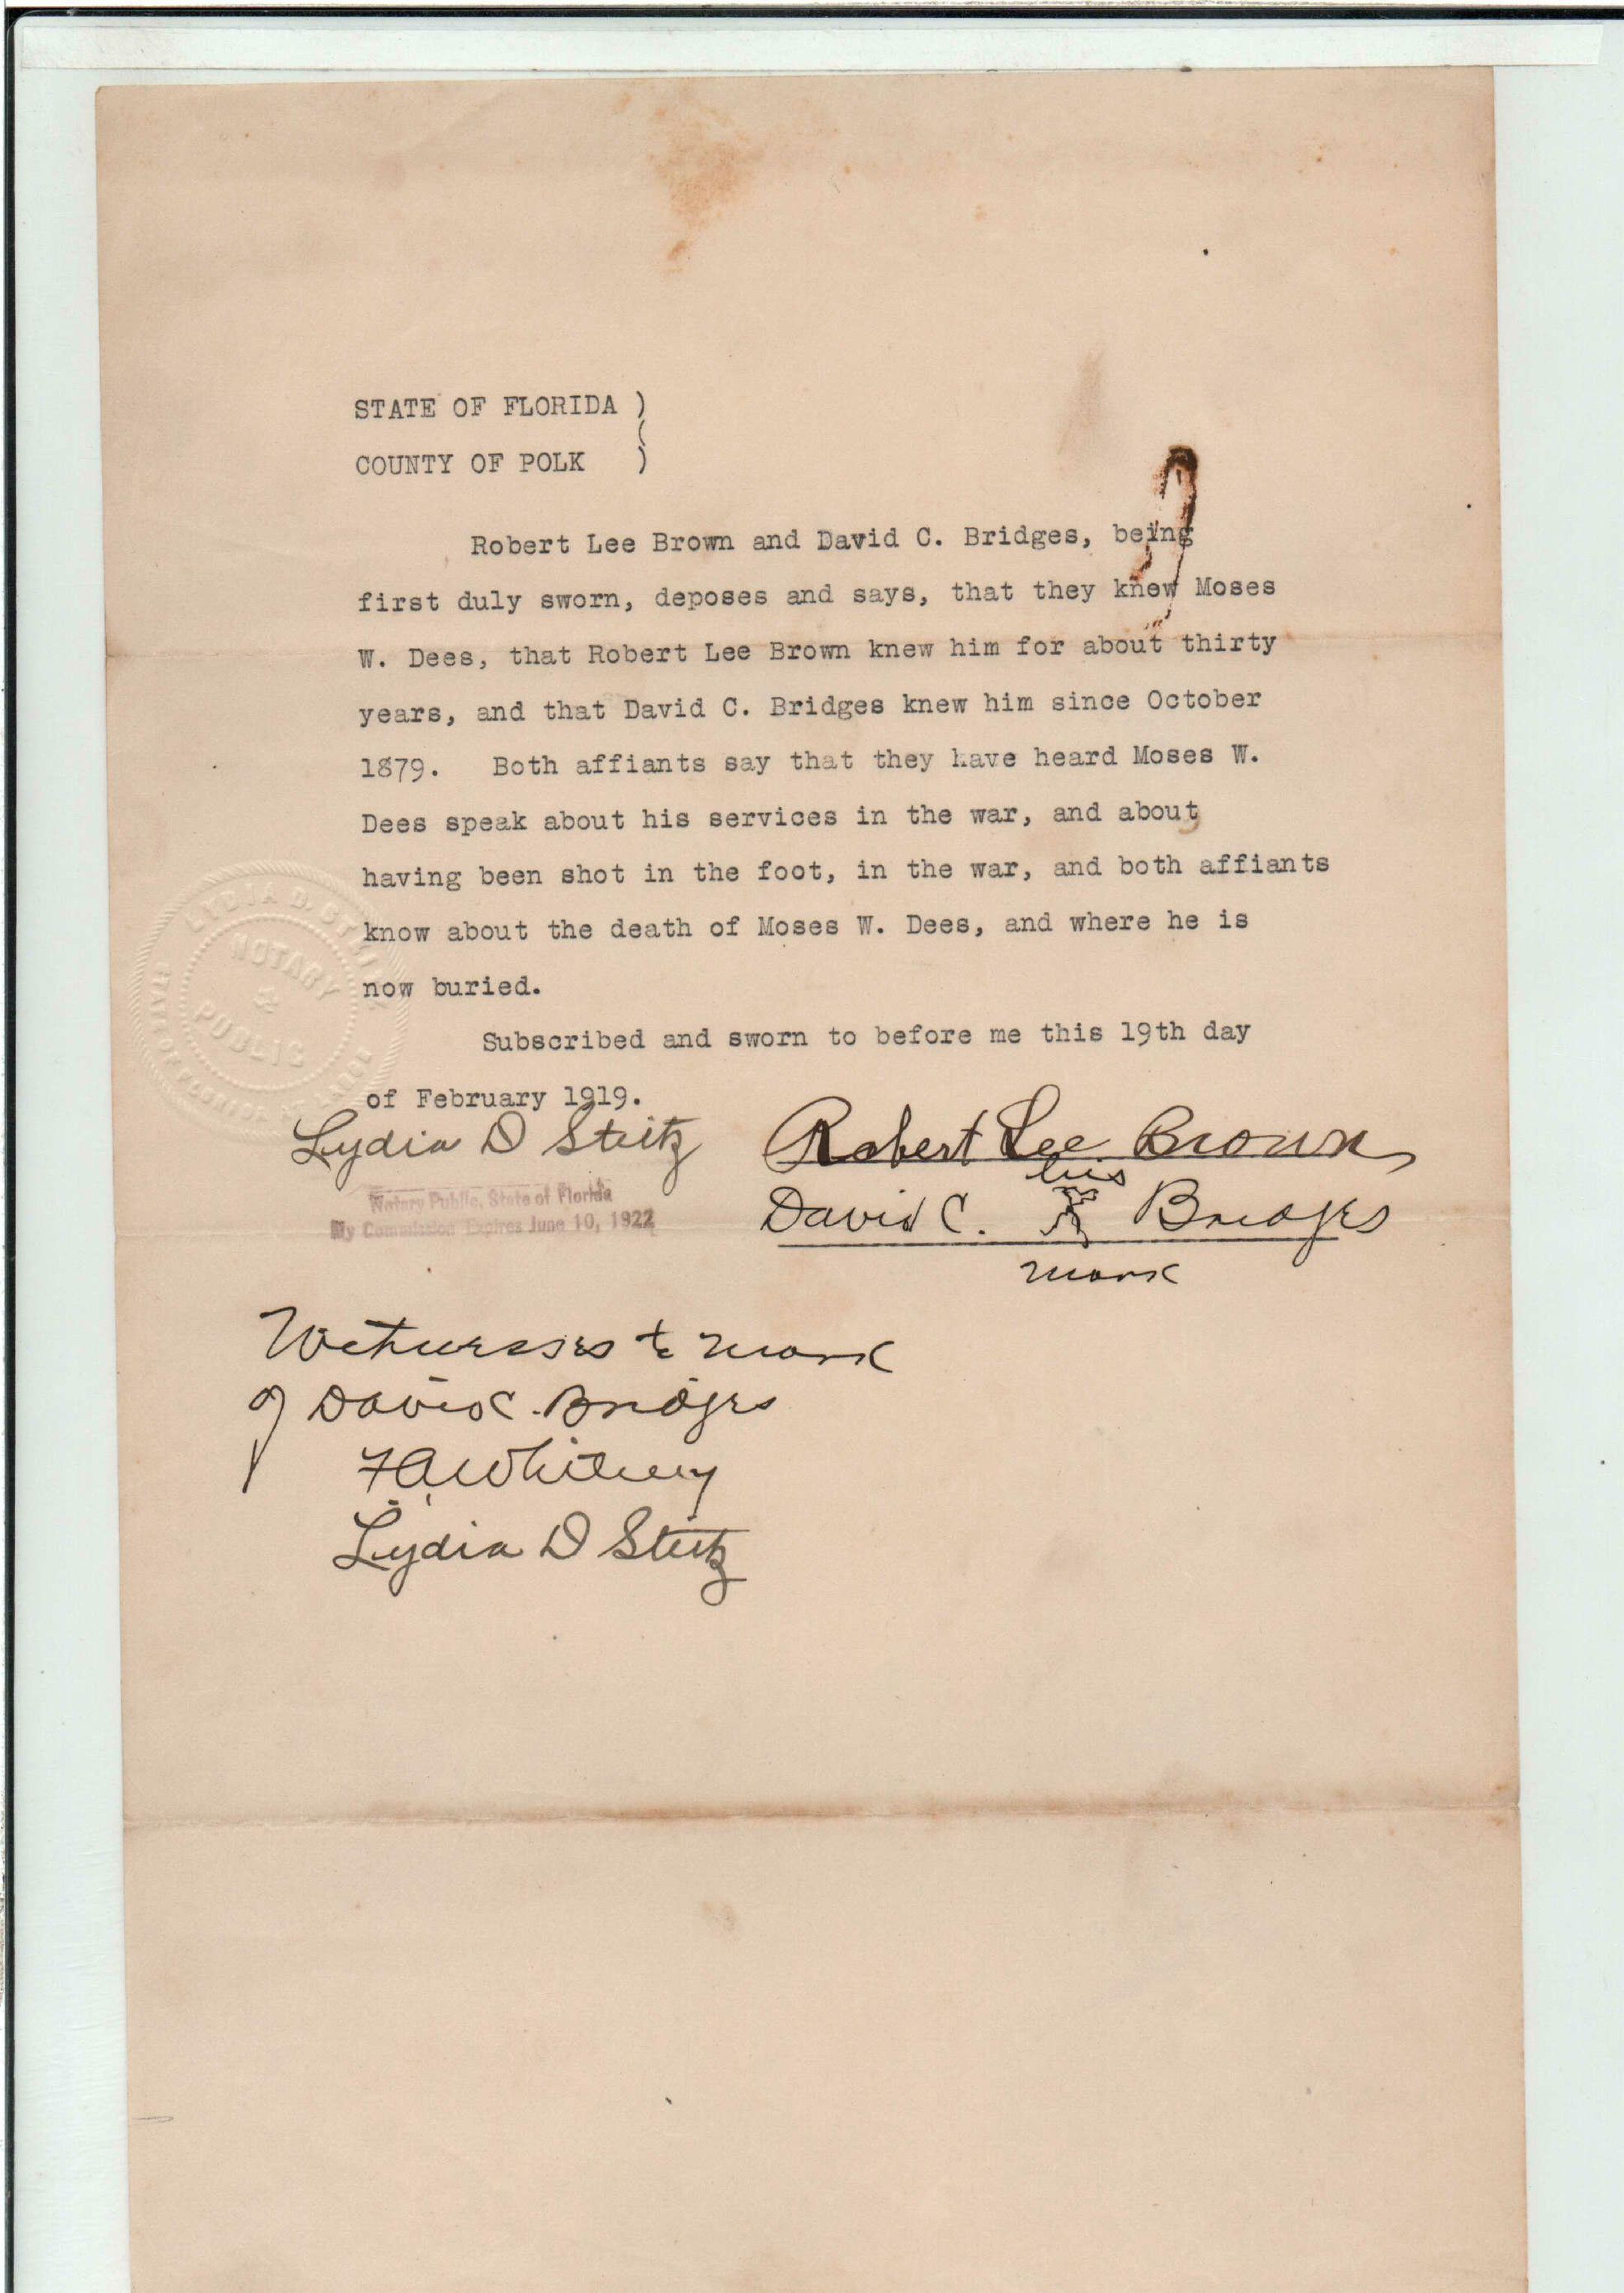 STATE OF FLORIDA )
(
COUNTY OF POLK )
Robert Lee Brown and David C. Bridges, being
first duly sworn, deposes and says, that they knew Moses
W. Dees, that Robert Lee Brown knew him for about thirty
years, and that David C. Bridges knew him since October
1879. Both affiants say that they have heard Moses W.
Dees speak about his services in the war, and about
having been shot in the foot, in the war, and both affiants
know about the death of Moses W. Dees, and where he is
now buried.
Subscribed and sworn to before me this 19th day
of February 1919.
LYDIA D.
NOTARY
PUBLIC
STATE OF FLORIDA AT LARGE
Lydia D Steitz
Notary Public, State of Florida
My Commission Expires June 10, 1922
Robert Lee Brown
his
David C. X Bridges
mark
Witnesses to mark
of David C. Bridges
F.A. Whitney
Lydia D Steitz